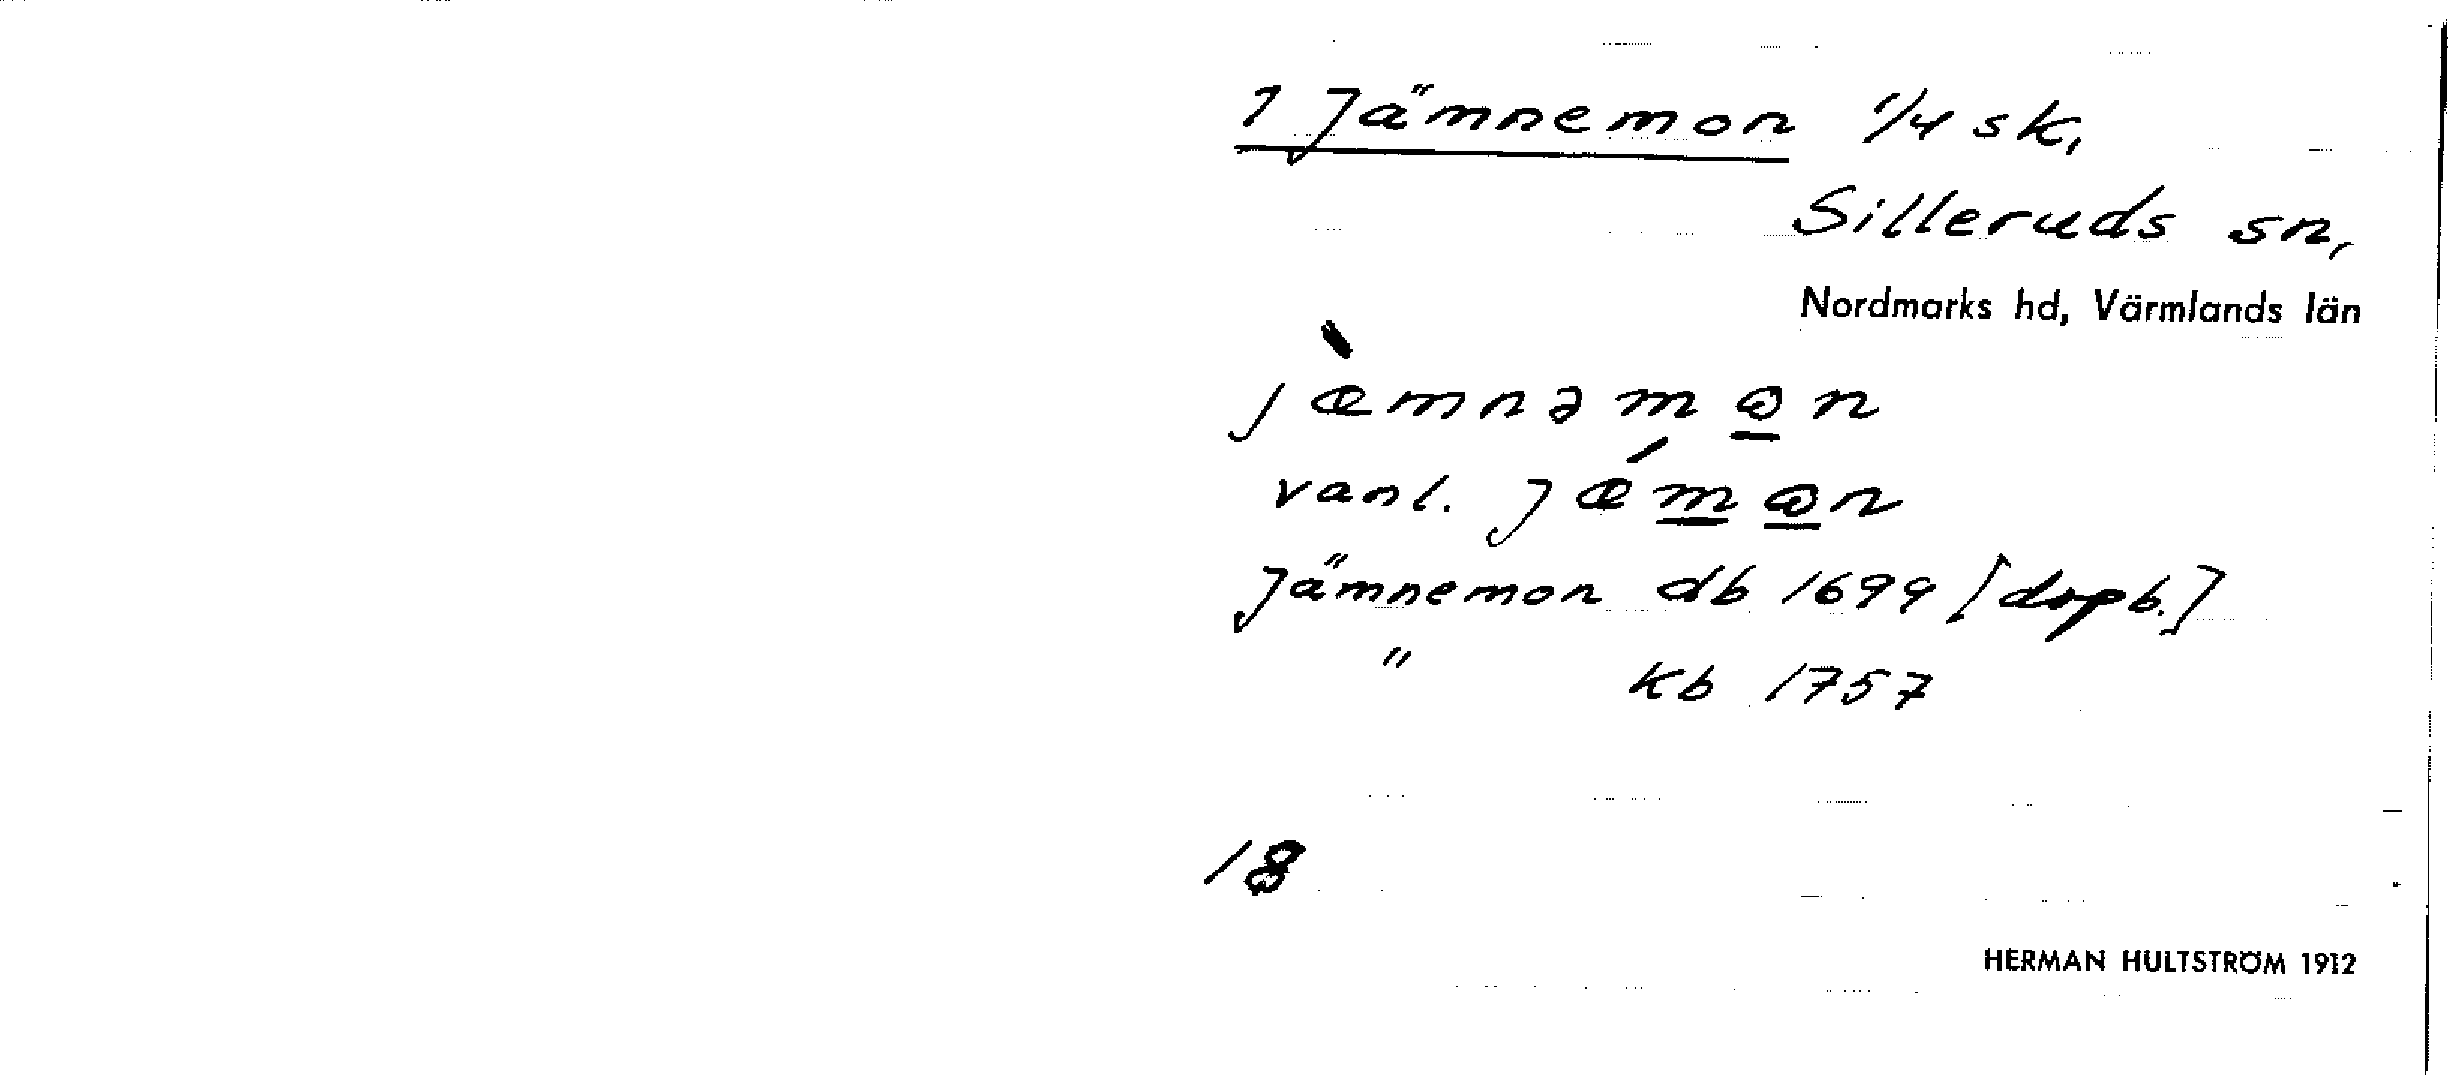 1 Jämnemon 1/4 sk,
Silleruds sn,
Nordmarks hd, Värmlands län
jæ̀mnəmꞷ̲n
vanl. jǽm̲ꞷ̲n
Jämnemon db 1699 [dopb.]
" kb 1757
18
HERMAN HULTSTRÖM 1912